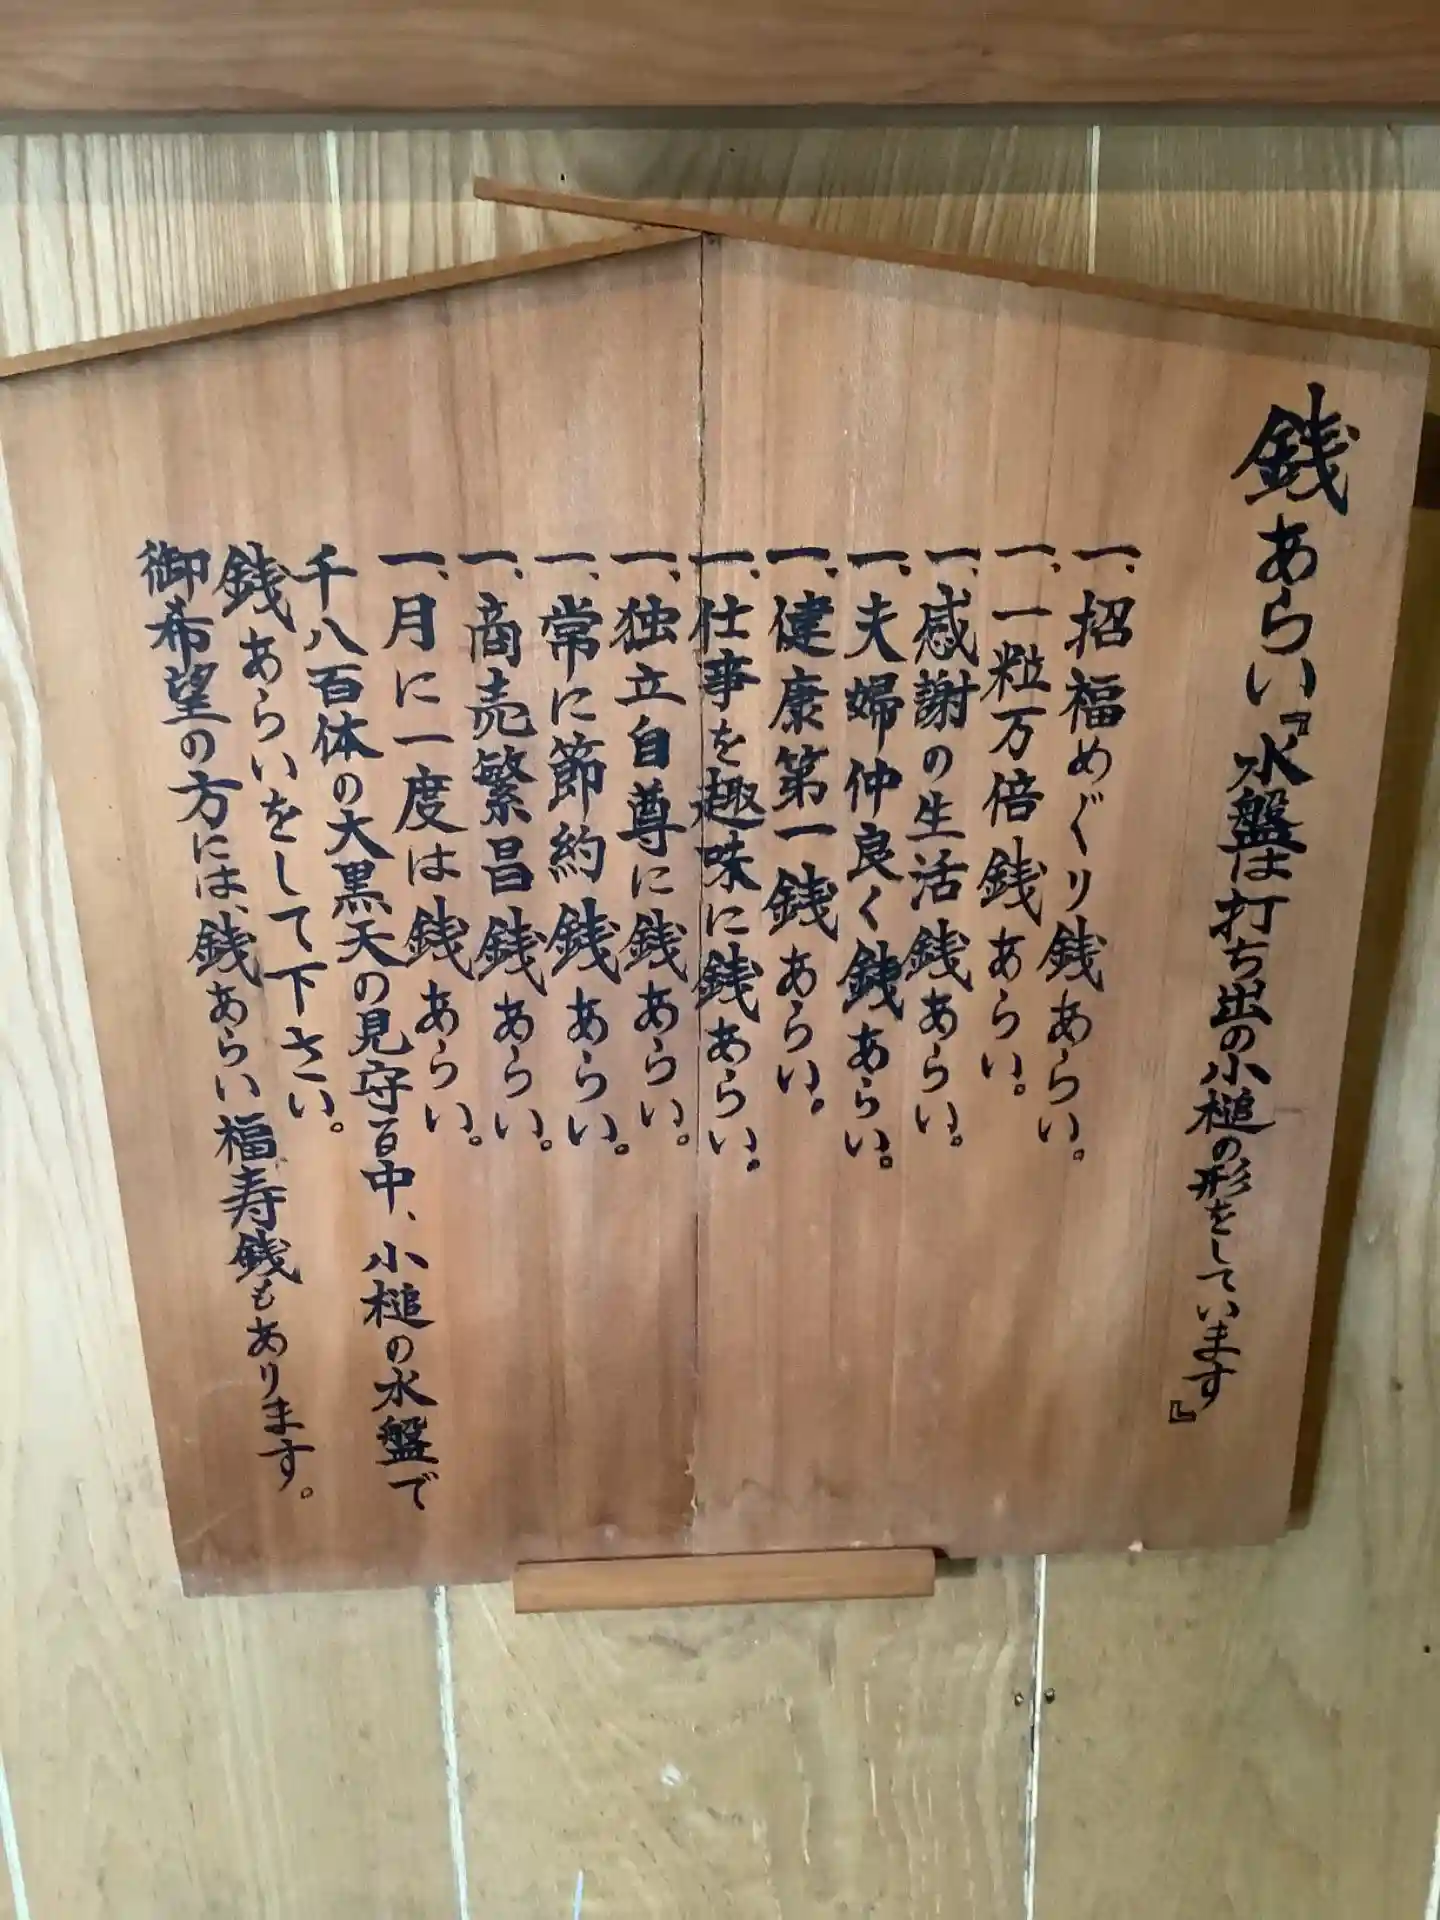 銭あらい『水盤は打ち出の小槌の形をしています』
一、招福めぐり銭あらい。
一、一粒万倍銭あらい。
一、感謝の生活銭あらい。
一、夫婦仲良く銭あらい。
一、健康第一銭あらい。
一、仕事を趣味に銭あらい。
一、独立自尊に銭あらい。
一、常に節約銭あらい。
一、商売繁昌銭あらい。
一、月に一度は銭あらい。
千八百体の大黒天の見守る中、小槌の水盤で
銭あらいをして下さい。
御希望の方には、銭あらい福寿銭もあります。